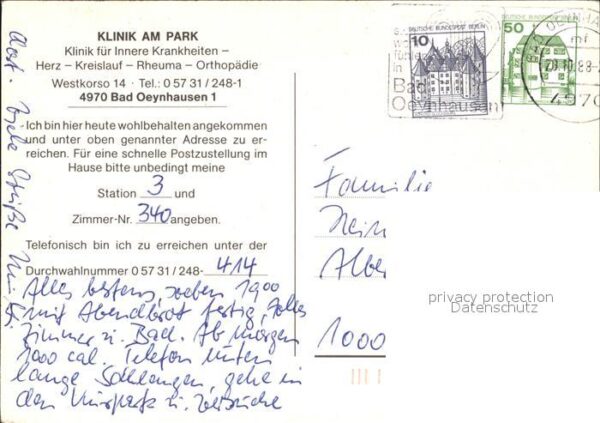 KLINIK AM PARK
Klinik für Innere Krankheiten –
Herz – Kreislauf – Rheuma – Orthopädie
Westkorso 14 · Tel.: 0 57 31 / 248-1
4970 Bad Oeynhausen 1
Ich bin hier heute wohlbehalten angekommen
und unter oben genannter Adresse zu er-
reichen. Für eine schnelle Postzustellung im
Hause bitte unbedingt meine
Station 3 und
Zimmer-Nr. 340 angeben.
Telefonisch bin ich zu erreichen unter der
Durchwahlnummer 0 57 31 / 248- 414
Alles bestens, 1900
mit Abendbrot fertig, tolles
Zimmer u. Bad. Ab morgen
1000 cal. Telefon unten
lange Schlangen, gehe in
den Kurpark u.
Grüße
DEUTSCHE BUNDESPOST BERLIN
10
DEUTSCHE BUNDESPOST BERLIN
50
in
Bad
Oeynhausen
4970
Familie
Albe
1000
privacy protection
Datenschutz